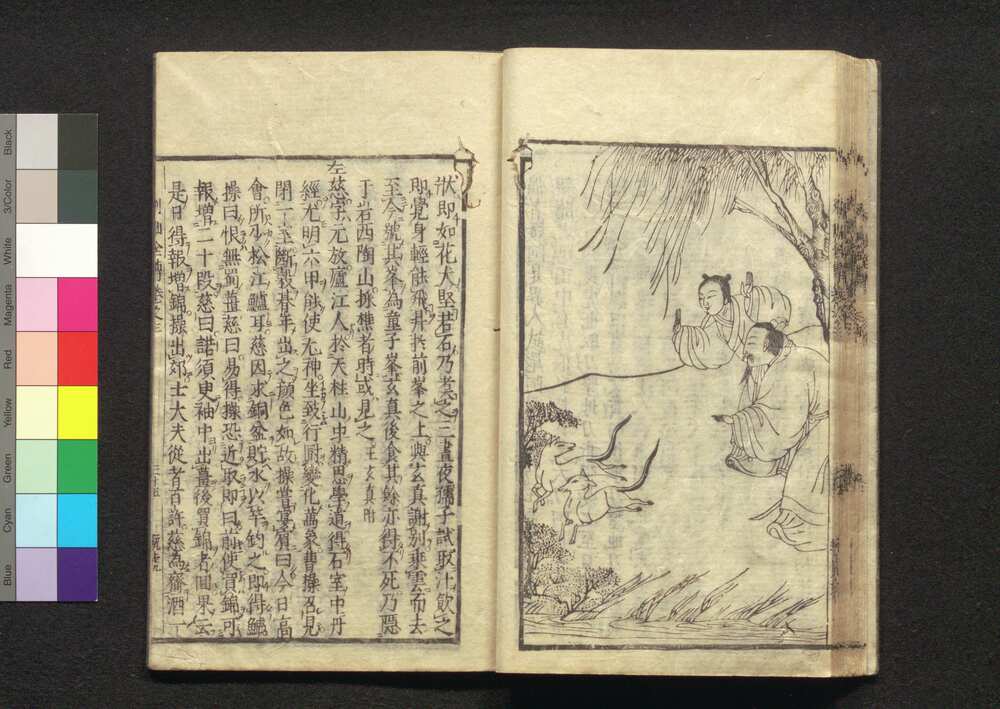 狀即如花犬堅若石乃煮之三晝夜孺子試取汁飲之
即覺身輕能飛昇於前峯之上與玄真謝別乘雲而去
至今號其峯為童子峯玄真後食其餘亦得不死乃隱
于岩西陶山採樵者時或見之 王玄真附
左慈字元放廬江人於天柱山中精思學道得石室中丹
經尤明六甲能使鬼神坐致行厨變化萬象曹操召見
閉一室斷穀朞年出之顏色如故操嘗宴賓曰今日高
會所少松江鱸耳慈因求銅盆貯水以竿釣之即得鱸
操曰恨無蜀薑慈曰易得操恐近取即曰前使買錦可
報增二十段慈曰諾須臾袖中出薑後買錦者回果云
是日得報增錦操出郊士大夫從者百許慈為齎酒一
Black
3/Color
White
Magenta
Red
Yellow
Green
Cyan
Blue